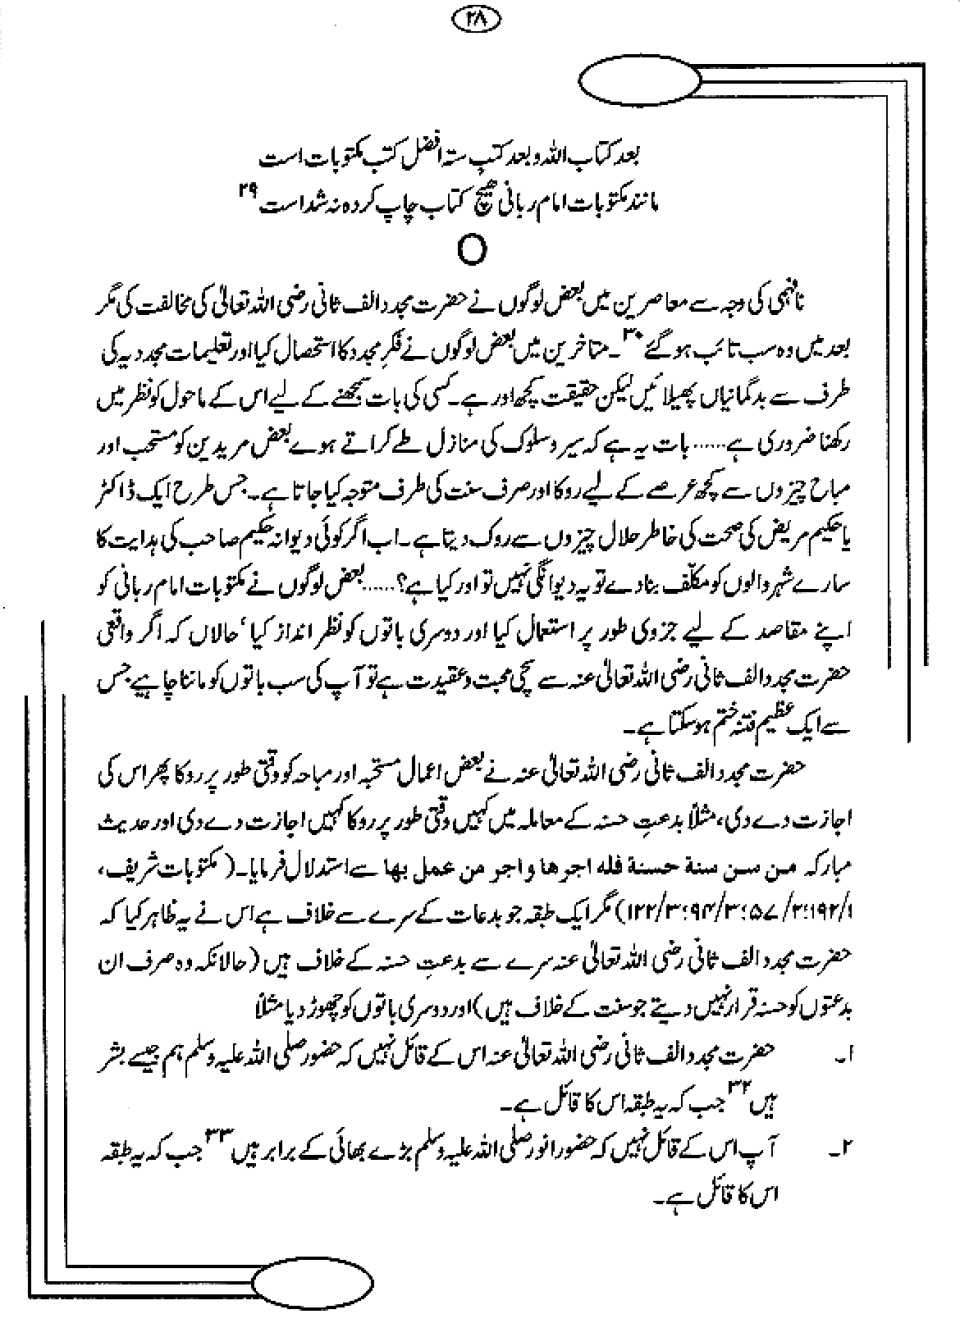 ۲۸
بعد کتاب اللہ و بعد کتبِ ستہ افضل کتب مکتوبات است
مانند مکتوبات امام ربانی ھیچ کتاب چاپ کردہ نہ شد است ۲۹
نافہمی کی وجہ سے معاصرین میں بعض لوگوں نے حضرت مجدد الف ثانی رضی اللہ تعالیٰ کی مخالفت کی مگر
بعد میں وہ سب تائب ہوگئے ۳۰۔ متاخرین میں بعض لوگوں نے فکرِ مجدد کا استحصال کیا اور تعلیمات مجددیہ کی
طرف سے بدگمانیاں پھیلائیں لیکن حقیقت کچھ اور ہے۔ کسی کی بات سمجھنے کے لیے اس کے ماحول کو نظر میں
رکھنا ضروری ہے...... بات یہ ہے کہ سیر و سلوک کی منازل طے کراتے ہوے بعض مریدین کو مستحب اور
مباح چیزوں سے کچھ عرصے کے لیے روکا اور صرف سنت کی طرف متوجہ کیا جاتا ہے۔ جس طرح ایک ڈاکٹر
یا حکیم مریض کی صحت کی خاطر حلال چیزوں سے روک دیتا ہے۔ اب اگر کوئی دیوانہ حکیم صاحب کی ہدایت کا
سارے شہر والوں کو مکلّف بنا دے تو یہ دیوانگی نہیں تو اور کیا ہے؟...... بعض لوگوں نے مکتوبات امام ربانی کو
اپنے مقاصد کے لیے جزوی طور پر استعمال کیا اور دوسری باتوں کو نظر انداز کیا، حالاں کہ اگر واقعی
حضرت مجدد الف ثانی رضی اللہ تعالیٰ عنہ سے سچی محبت و عقیدت ہے تو آپ کی سب باتوں کو ماننا چاہیے جس
سے ایک عظیم فتنہ ختم ہوسکتا ہے۔
حضرت مجدد الف ثانی رضی اللہ تعالیٰ عنہ نے بعض اعمال مستحبہ اور مباحہ کو وقتی طور پر روکا پھر اس کی
اجازت دے دی، مثلاً بدعتِ حسنہ کے معاملہ میں کہیں وقتی طور پر روکا کہیں اجازت دے دی اور حدیث
مبارکہ من سن سنة حسنة فله اجرها و اجر من عمل بها سے استدلال فرمایا۔ (مکتوبات شریف،
۱/۱۹۲؛۲/۵۷؛۳/۹۴؛۳/۱۲۲) مگر ایک طبقہ جو بدعات کے سرے سے خلاف ہے اس نے یہ ظاہر کیا کہ
حضرت مجدد الف ثانی رضی اللہ تعالیٰ عنہ سرے سے بدعتِ حسنہ کے خلاف ہیں (حالانکہ وہ صرف ان
بدعتوں کو حسنہ قرار نہیں دیتے جو سنت کے خلاف ہیں) اور دوسری باتوں کو چھوڑ دیا مثلاً
۱۔ حضرت مجدد الف ثانی رضی اللہ تعالیٰ عنہ اس کے قائل نہیں کہ حضور صلی اللہ علیہ وسلم ہم جیسے بشر
ہیں ۳۲ جب کہ یہ طبقہ اس کا قائل ہے۔
۲۔ آپ اس کے قائل نہیں کہ حضور انور صلی اللہ علیہ وسلم بڑے بھائی کے برابر ہیں ۳۳ جب کہ یہ طبقہ
اس کا قائل ہے۔